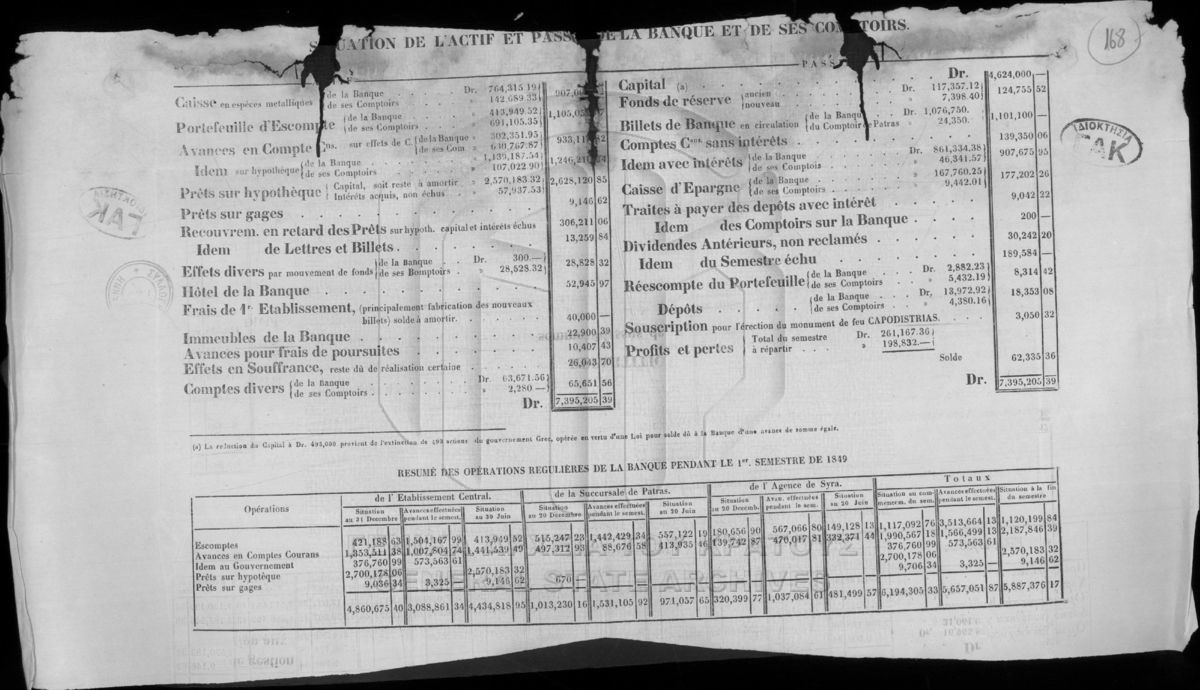 168
SITUATION DE L'ACTIF ET PASSIF DE LA BANQUE ET DE SES COMPTOIRS.
Caisse en espèces metalliques {de la Banque Dr. 764,315.19}
{de ses Comptoirs . . . » 142,689.33}
Portefeuille d'Escompte {de la Banque . . . 413,949.52} 1,105,05
{de ses Comptoirs . . 691,105.35}
Avances en Compte Cns. sur effets de C. {de la Banque » 302,351.95} 933,11
{de ses Com 630,767.87}
Idem sur hypothèque {de la Banque . . . 1,139,187.54} 1,246,210
{de ses Comptoirs . . . » 107,022.90}
Prêts sur hypothèque { Capital, soit reste à amortir » 2,570,183.32} 2,628,120 85
{ Intérêts acquis, non échus . » 57,937.53}
Prêts sur gages . . . . 9,146 62
Recouvrem. en retard des Prêts sur hypoth. capital et intérèts échus 306,211 06
Idem de Lettres et Billets . . . . 13,259 84
Effets divers par mouvement de fonds {de la Banque . . Dr. 300.—} 28,828 32
{de ses Bomptoirs . . » 28,528.32}
Hôtel de la Banque . . . . 52,945 97
Frais de 1r. Etablissement, (principalement fabrication des nouveaux
billets) solde à amortir. . . . 40,000 —
Immeubles de la Banque . . . . 22,900 39
Avances pour frais de poursuites . . . 10,407 43
Effets en Souffrance, reste dû de réalisation certaine . . . 26,043 70
Comptes divers {de la Banque . . . Dr. 63,671.56} 65,651 56
{de ses Comptoirs . . . » 2,280 —}
Dr. 7,395,205 39
PASS
Capital (a) . . . . Dr. 4,624,000 —
Fonds de réserve {ancien . . . Dr. 117,357.12} 124,755 52
{nouveau . . . 7,398.40}
Billets de Banque en circulation {de la Banque . Dr. 1,076,750. 1,101,100 —
{du Comptoir de Patras 24,350.
Comptes Cans sans intérêts . . . . 139,350 06
Idem avec intérêts {de la Banque . . . Dr. 861,334.38} 907,675 95
{de ses Comptois . . . 46,341.57}
Caisse d'Epargne {de la Banque . . . 167,760.25} 177,202 26
{de ses Comptoirs . . . 9,442.01}
Traites à payer des depôts avec intérêt . . . 9,042 22
Idem des Comptoirs sur la Banque . . . 200 —
Dividendes Antérieurs, non reclamés . . . 30,242 20
Idem du Semestre échu . . . 189,584 —
Réescompte du Portefeuille {de la Banque . . Dr. 2,882.23} 8,314 42
{de ses Comptoirs . » 5,432.19}
Dépôts {de la Banque . . . Dr, 13,972.92} 18,353 08
{de ses Comptoirs . . . » 4,380.16}
Souscription pour l'érection du monument de feu CAPODISTRIAS. . . 3,050 32
Profits et pertes { Total du semestre Dr. 261,167.36}
{ à répartir . . . » 198,832.—}
Solde 62,335 36
Dr. 7,395,205 39
ΙΔΙΟΚΤΗΣΙΑ
ΓΑΚ
(a) La reduction du Capital à Dr. 495,000 provient de l'extinction de 493 actions du gouvernement Grec, opérée en vertu d'une Loi pour solde dû à la Banque d'une avance de somme égale.
RESUMÉ DES OPÉRATIONS REGULIÈRES DE LA BANQUE PENDANT LE 1er. SEMESTRE DE 1849
Opérations | de l' Etablissement Central. | de la Succursale de Patras. | de l' Agence de Syra. | Totaux
Situation au 31 Decembre | Avances effectuées pendant le semest. | Situation au 30 Juin | Situation au 20 Décembre | Avances effectuées pendant le semest. | Situation au 20 Juin | Situation au 20 Decemb. | Avan. effectuées pendant le sem. | Situation au 20 Juin | Situation au commencem. du sem. | Avances effectuées pendant le semest. | Situation à la fin du semestre
Escomptes 421,188 63 1,504,167 99 413,949 52 515,247 23 1,442,429 34 557,122 19 180,656 90 567,066 80 149,128 13 1,117,092 76 3,513,664 13 1,120,199 84
Avances en Comptes Courans 1,353,511 38 1,007,804 74 1,441,539 49 497,312 93 88,676 58 413,935 46 139,742 87 470,017 81 332,371 44 1,990,567 18 1,566,499 13 2,187,846 39
Idem au Gouvernement 376,760 99 573,563 61 376,760 99 573,563 61
Prêts sur hypotèque 2,700,178 06 2,570,183 32 2,700,178 06 2,570,183 32
Prêts sur gages 9,036 34 3,325 — 9,146 62 670 9,706 34 3,325 — 9,146 62
4,860,675 40 3,088,861 34 4,434,818 95 1,013,230 16 1,531,105 92 971,057 65 320,399 77 1,037,084 61 481,499 57 6,194,305 33 5,657,051 87 5,887,376 17
GENERAL STATE ARCHIVES